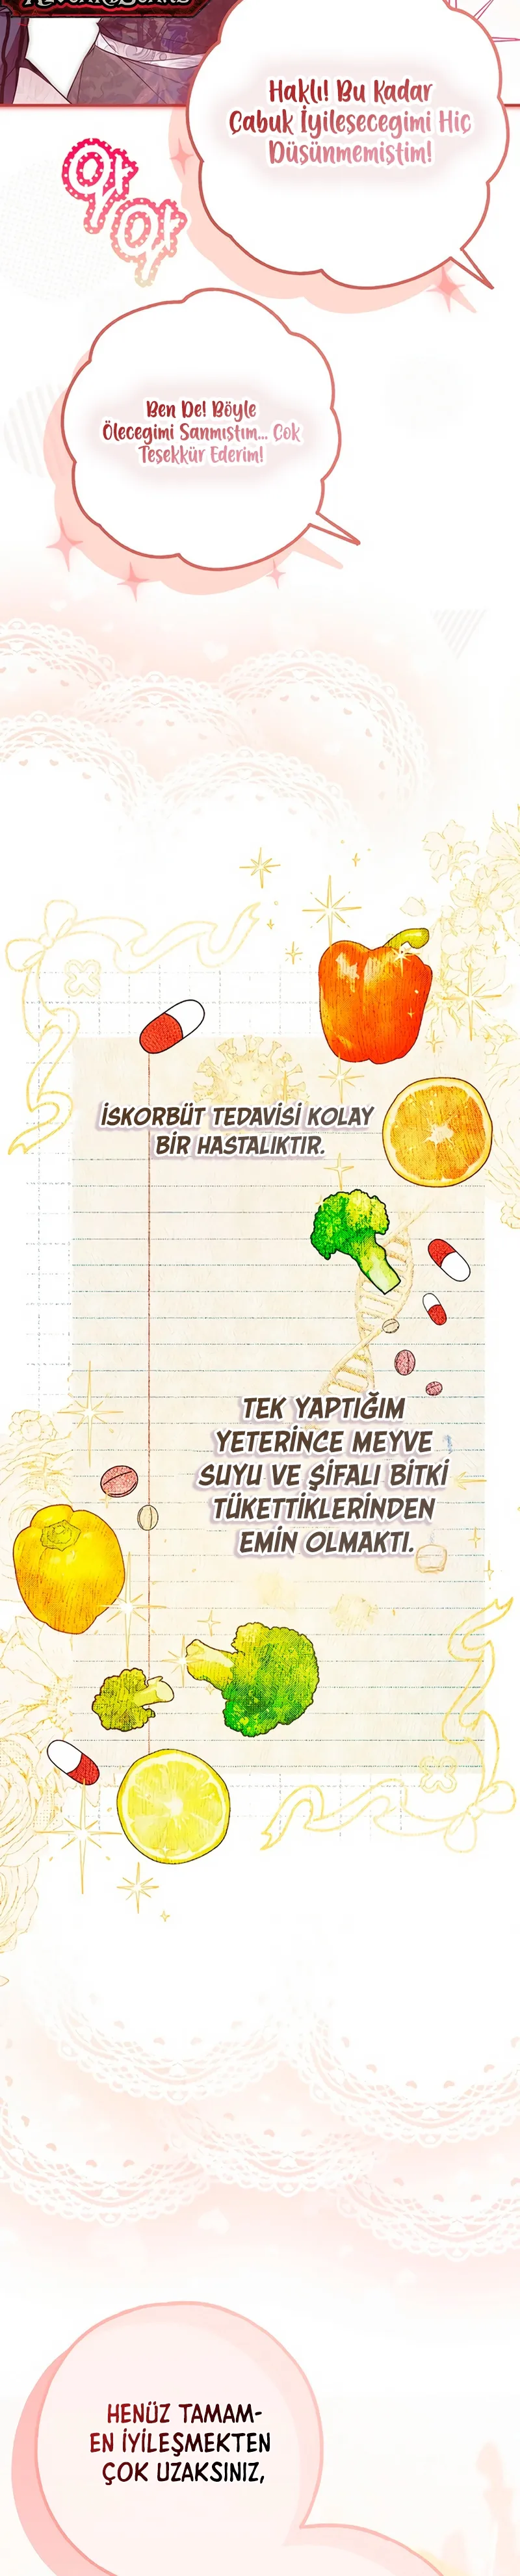 Haklı! Bu Kadar
Çabuk İyileşecegimi Hiç
Düşünmemiştim!
와
와
Ben De! Böyle
Ölecegimi Sanmıştım... Çok
Teşekkür Ederim!
İSKORBÜT TEDAVİSİ KOLAY
BİR HASTALIKTIR.
TEK YAPTIĞIM
YETERİNCE MEYVE
SUYU VE ŞİFALI BİTKİ
TÜKETTİKLERİNDEN
EMİN OLMAKTI.
HENÜZ TAMAM-
EN İYİLEŞMEKTEN
ÇOK UZAKSINIZ,